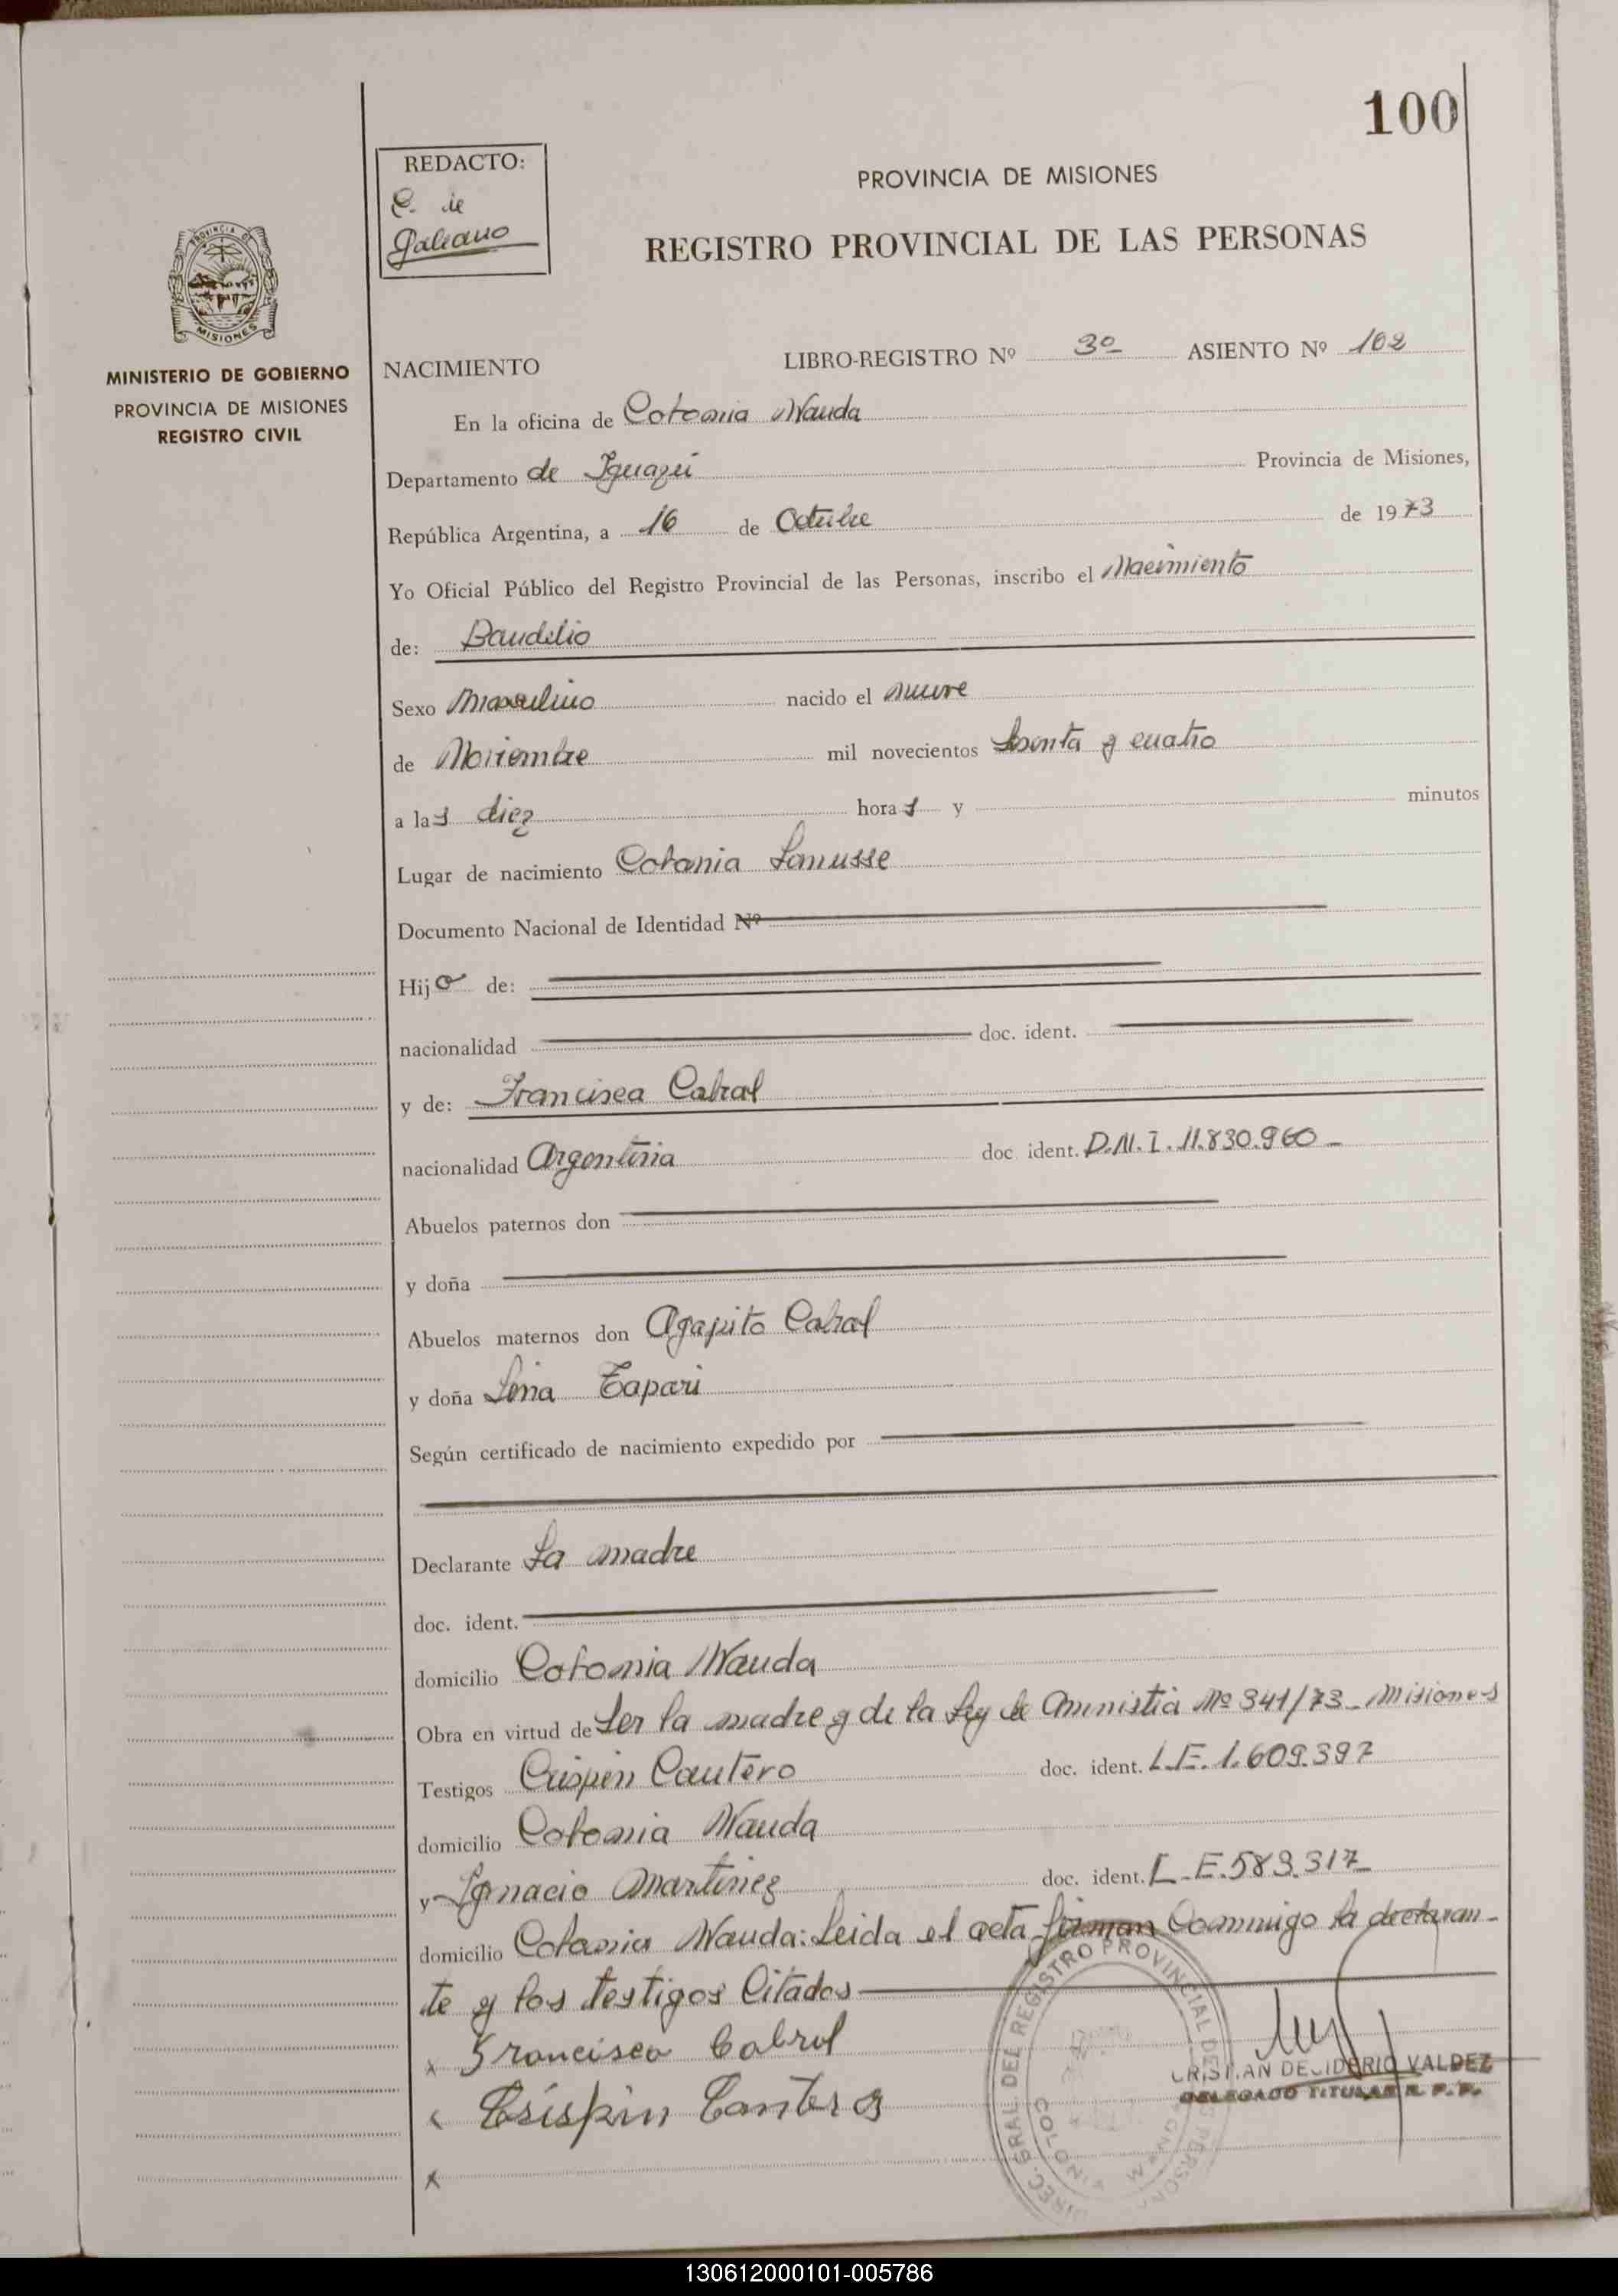 100
REDACTO:
C. de
Galeano
PROVINCIA DE MISIONES
REGISTRO PROVINCIAL DE LAS PERSONAS
PROVINCIA DE
MISIONES
MINISTERIO DE GOBIERNO
PROVINCIA DE MISIONES
REGISTRO CIVIL
NACIMIENTO LIBRO-REGISTRO Nº 3º ASIENTO Nº 102
En la oficina de Colonia Wanda
Departamento de Iguazú Provincia de Misiones,
República Argentina, a 16 de Octubre de 1973
Yo Oficial Público del Registro Provincial de las Personas, inscribo el Nacimiento
de: Baudilio
Sexo Masculino nacido el nueve
de Noviembre mil novecientos sesenta y cuatro
a las diez horas y minutos
Lugar de nacimiento Colonia Lanusse
Documento Nacional de Identidad Nº
Hijo de:
nacionalidad doc. ident.
y de: Francisca Cabral
nacionalidad Argentina doc. ident. D.N.I. 11.830.960 -
Abuelos paternos don
y doña
Abuelos maternos don Agapito Cabral
y doña Lina Tapari
Según certificado de nacimiento expedido por
Declarante La madre
doc. ident.
domicilio Colonia Wanda
Obra en virtud de Ser la madre y de la Ley de Aministia Nº 341/73 - Misiones
Testigos Crispin Cantero doc. ident. L.E. 1.609.397
domicilio Colonia Wanda
y Ignacio Martinez doc. ident. L.E. 583.317
domicilio Colonia Wanda: Leida el acta firman Conmigo la declaran-
te y los testigos Citados
x Francisca Cabral
x Crispin Cantero
x
DIREC. GRAL DEL REGISTRO PROVINCIAL DE LAS PERSONAS
COLONIA WANDA
CRISTIAN DESIDERIO VALDEZ
DELEGADO TITULAR R. P. P.
130612000101-005786